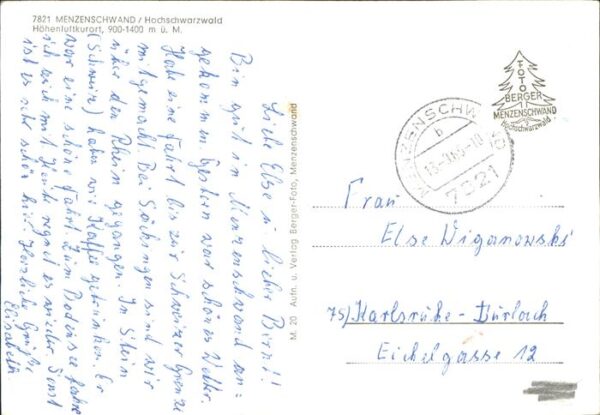 7821 MENZENSCHWAND / Hochschwarzwald
Höhenluftkurort, 900-1400 m ü. M.
Liebe Else u lieber Bernt!
Bin gut in Menzenschwand an-
gekommen. Gestern war schönes Wetter.
Hab eine Fahrt bis zur Schweizer Grenze
mitgemacht. Bei Säckingen sind wir
über den Rhein gegangen. In Stein
(Schweiz) haben wir Kaffee getrunken. Es
war eine schöne Fahrt. Zum Bodensee fahre
ich auch mit. Heute regnet es wieder. Sonst
ist es sehr schön hier. Herzliche Grüße
Elisabeth
M. 20 Aufn. u. Verlag Berger-Foto, Menzenschwand
MENZENSCHW
b
7821
FOTO
BERGER
MENZENSCHWAND
Hochschwarzwald
Frau
Else Wiganowski
75) Karlsruhe-Durlach
Eichelgasse 12